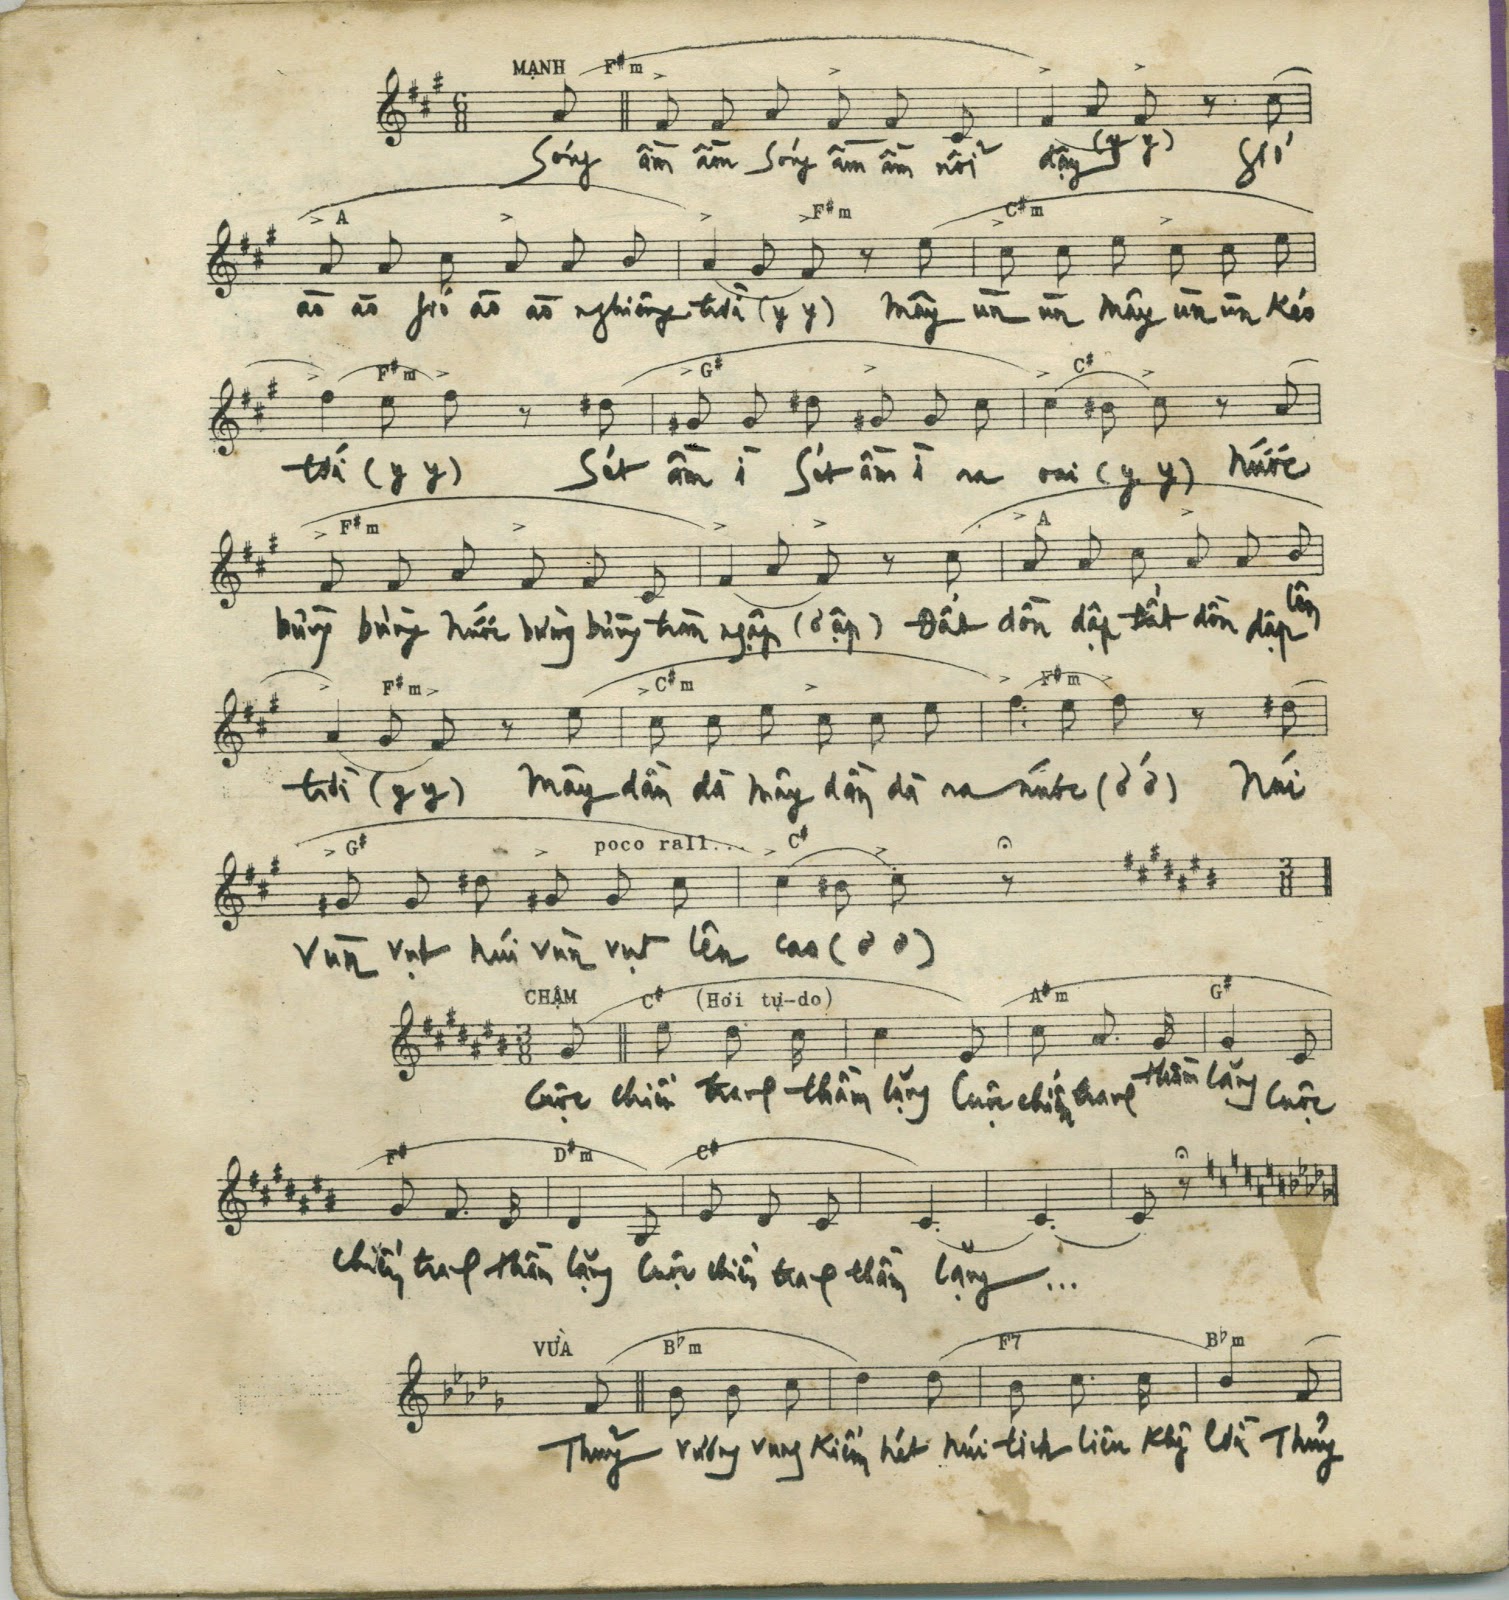 MẠNH F#m
Sóng ầm ầm Sóng ầm ầm nổi dậy (y y) Gió
A F#m C#m
ào ào gió ào ào nghiêng trời (y y) Mây ùn ùn Mây ùn ùn kéo
F#m G# C#
tới (y y) Sét ầm ì Sét ầm ì ra oai (y y) Nước
F#m A
bừng bừng Nước bừng bừng tràn ngập (ơ ập) Đất dồn dập Đất dồn dập lên
F#m C#m F#m
trời (y y) Mây dần dà mây dần dà ra nước (ơ ớ) Núi
G# poco rall... C#
Vùn vụt núi vùn vụt lên cao (ơ ơ)
CHẬM C# (Hơi tự-do) A#m G#
Cuộc chiến tranh thầm lặng Cuộc chiến tranh thầm lặng Cuộc
F# D#m C#
chiến tranh thầm lặng Cuộc chiến tranh thầm lặng ...
VỪA Bbm F7 Bbm
Thủy vương vung kiếm hét núi lịch liên khắp Thủy